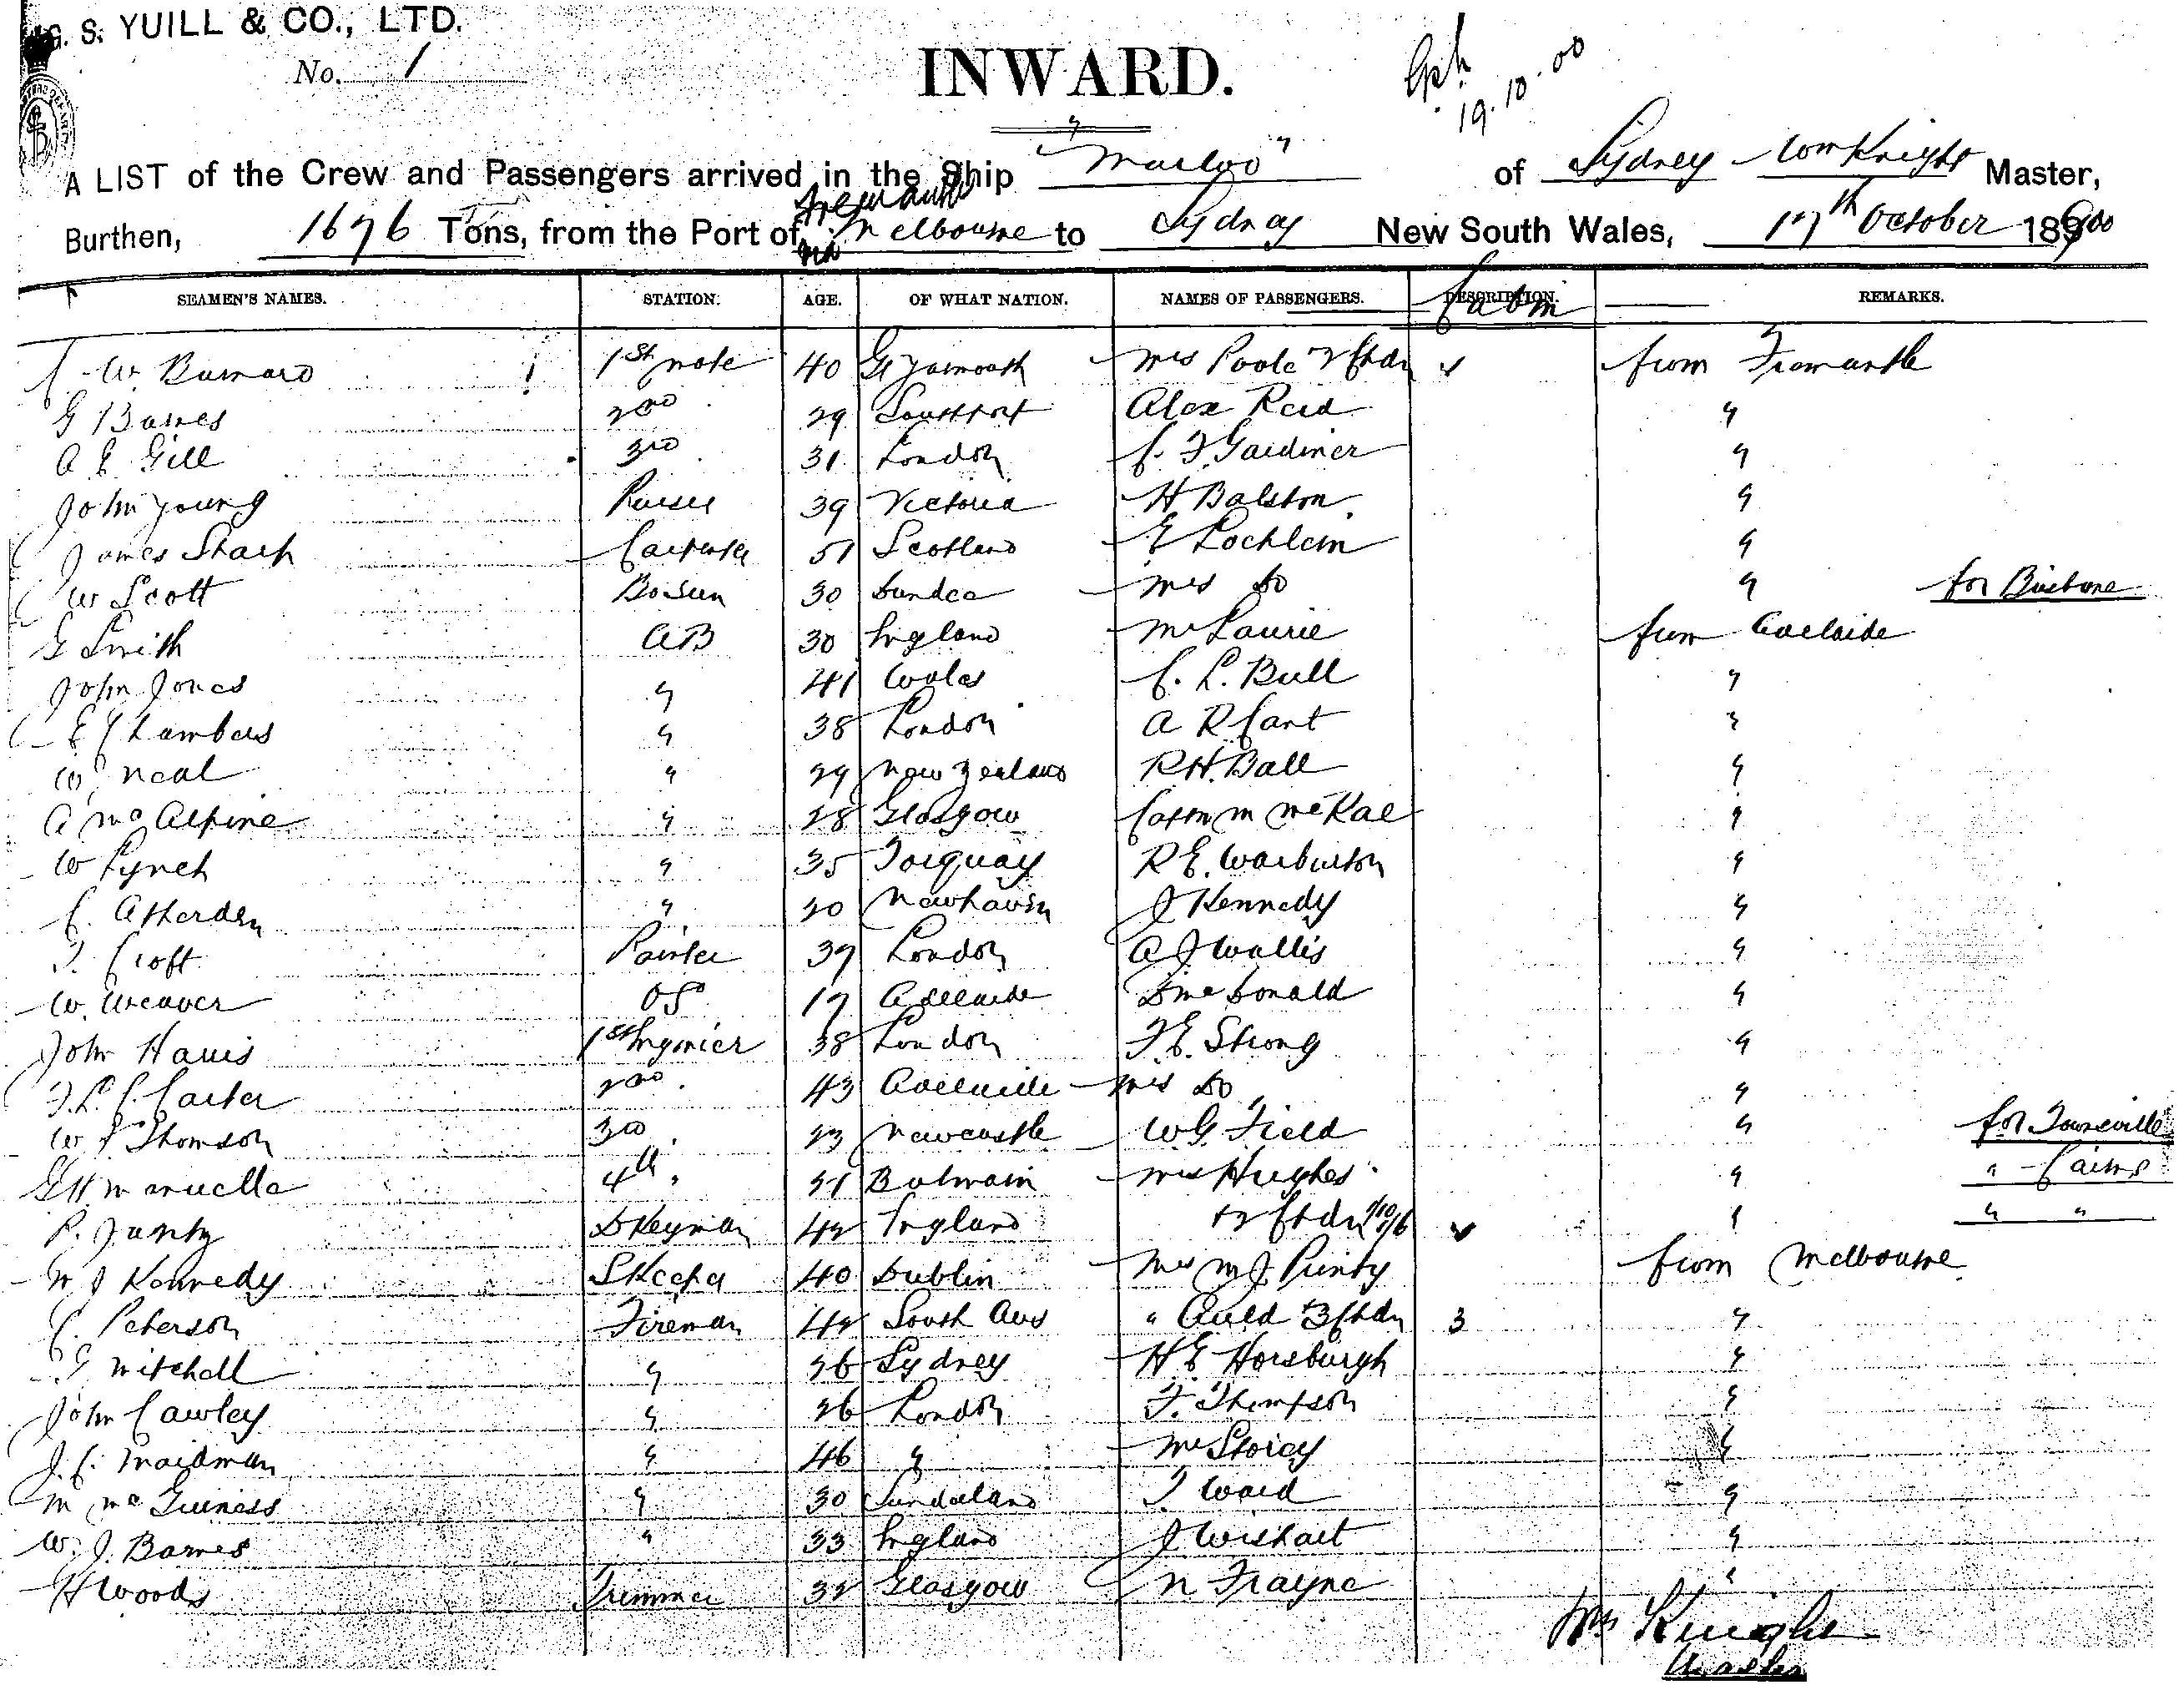 G. S. YUILL & CO., LTD.
No. 1
INWARD.
19.10.00
A LIST of the Crew and Passengers arrived in the Ship "Marloo" of Sydney Wm Knight Master,
Fremantle
Burthen, 1676 Tons, from the Port of via Melbourne to Sydney New South Wales, 17th October 1900
SEAMEN'S NAMES. STATION. AGE. OF WHAT NATION. NAMES OF PASSENGERS. DESCRIPTION. REMARKS.
Cabin
W. Barnard 1st mate 40 Gt Yarmouth Mrs Poole 2 Chdn from Fremantle
G Barnes 2nd 29 Southport Alex Reid "
A E Gill 3rd 31 London C. F. Gardiner "
John Young Purser 39 Victoria H Balston "
James Shark Carpenter 51 Scotland E Lochlein "
W Scott Bosun 30 Dundee Mrs Do " for Brisbane
G Smith AB 30 England Mr Laurie from Adelaide
John Jones " 41 Wales C. L. Bull "
E Chambers " 38 London A R Cant "
W. Neal " 29 New Zealand R.H. Ball "
A McAlpine " 28 Glasgow Captn M McKae "
W Lynch " 35 Torquay R E. Warburton "
C. Atherden " 20 Newhaven J Kennedy "
T. Croft Painter 39 London A J Wallis "
W. Weaver OS 17 Adelaide D McDonald "
John Harris 1st Engineer 38 London F. E. Strong "
F. L. C. Carter 2nd 43 Adelaide Mrs Do "
W J Thomson 3rd 23 Newcastle W G Field " for Townsville
G H Manuella 4th 21 Balmain Mrs Hughes " " Cairns
P. Dkeyman 42 England + 2 Chdn " " "
M J Kennedy SKeeper 40 Dublin Mrs M J. Punty from Melbourne
C. Peterson Fireman 42 South Aus " Auld 3 Chdn 3 "
G Mitchell " 26 Sydney H E Horsburgh "
John Cawley " 26 London F. Thompson "
J. C. Maidman " 46 " Mr Storey "
M McGuiness " 30 Sunderland T Ward "
W. J. Barnes " 33 England J Wishart "
H Woods Trimmer 32 Glasgow N Frayne "
Wm Knight
Master